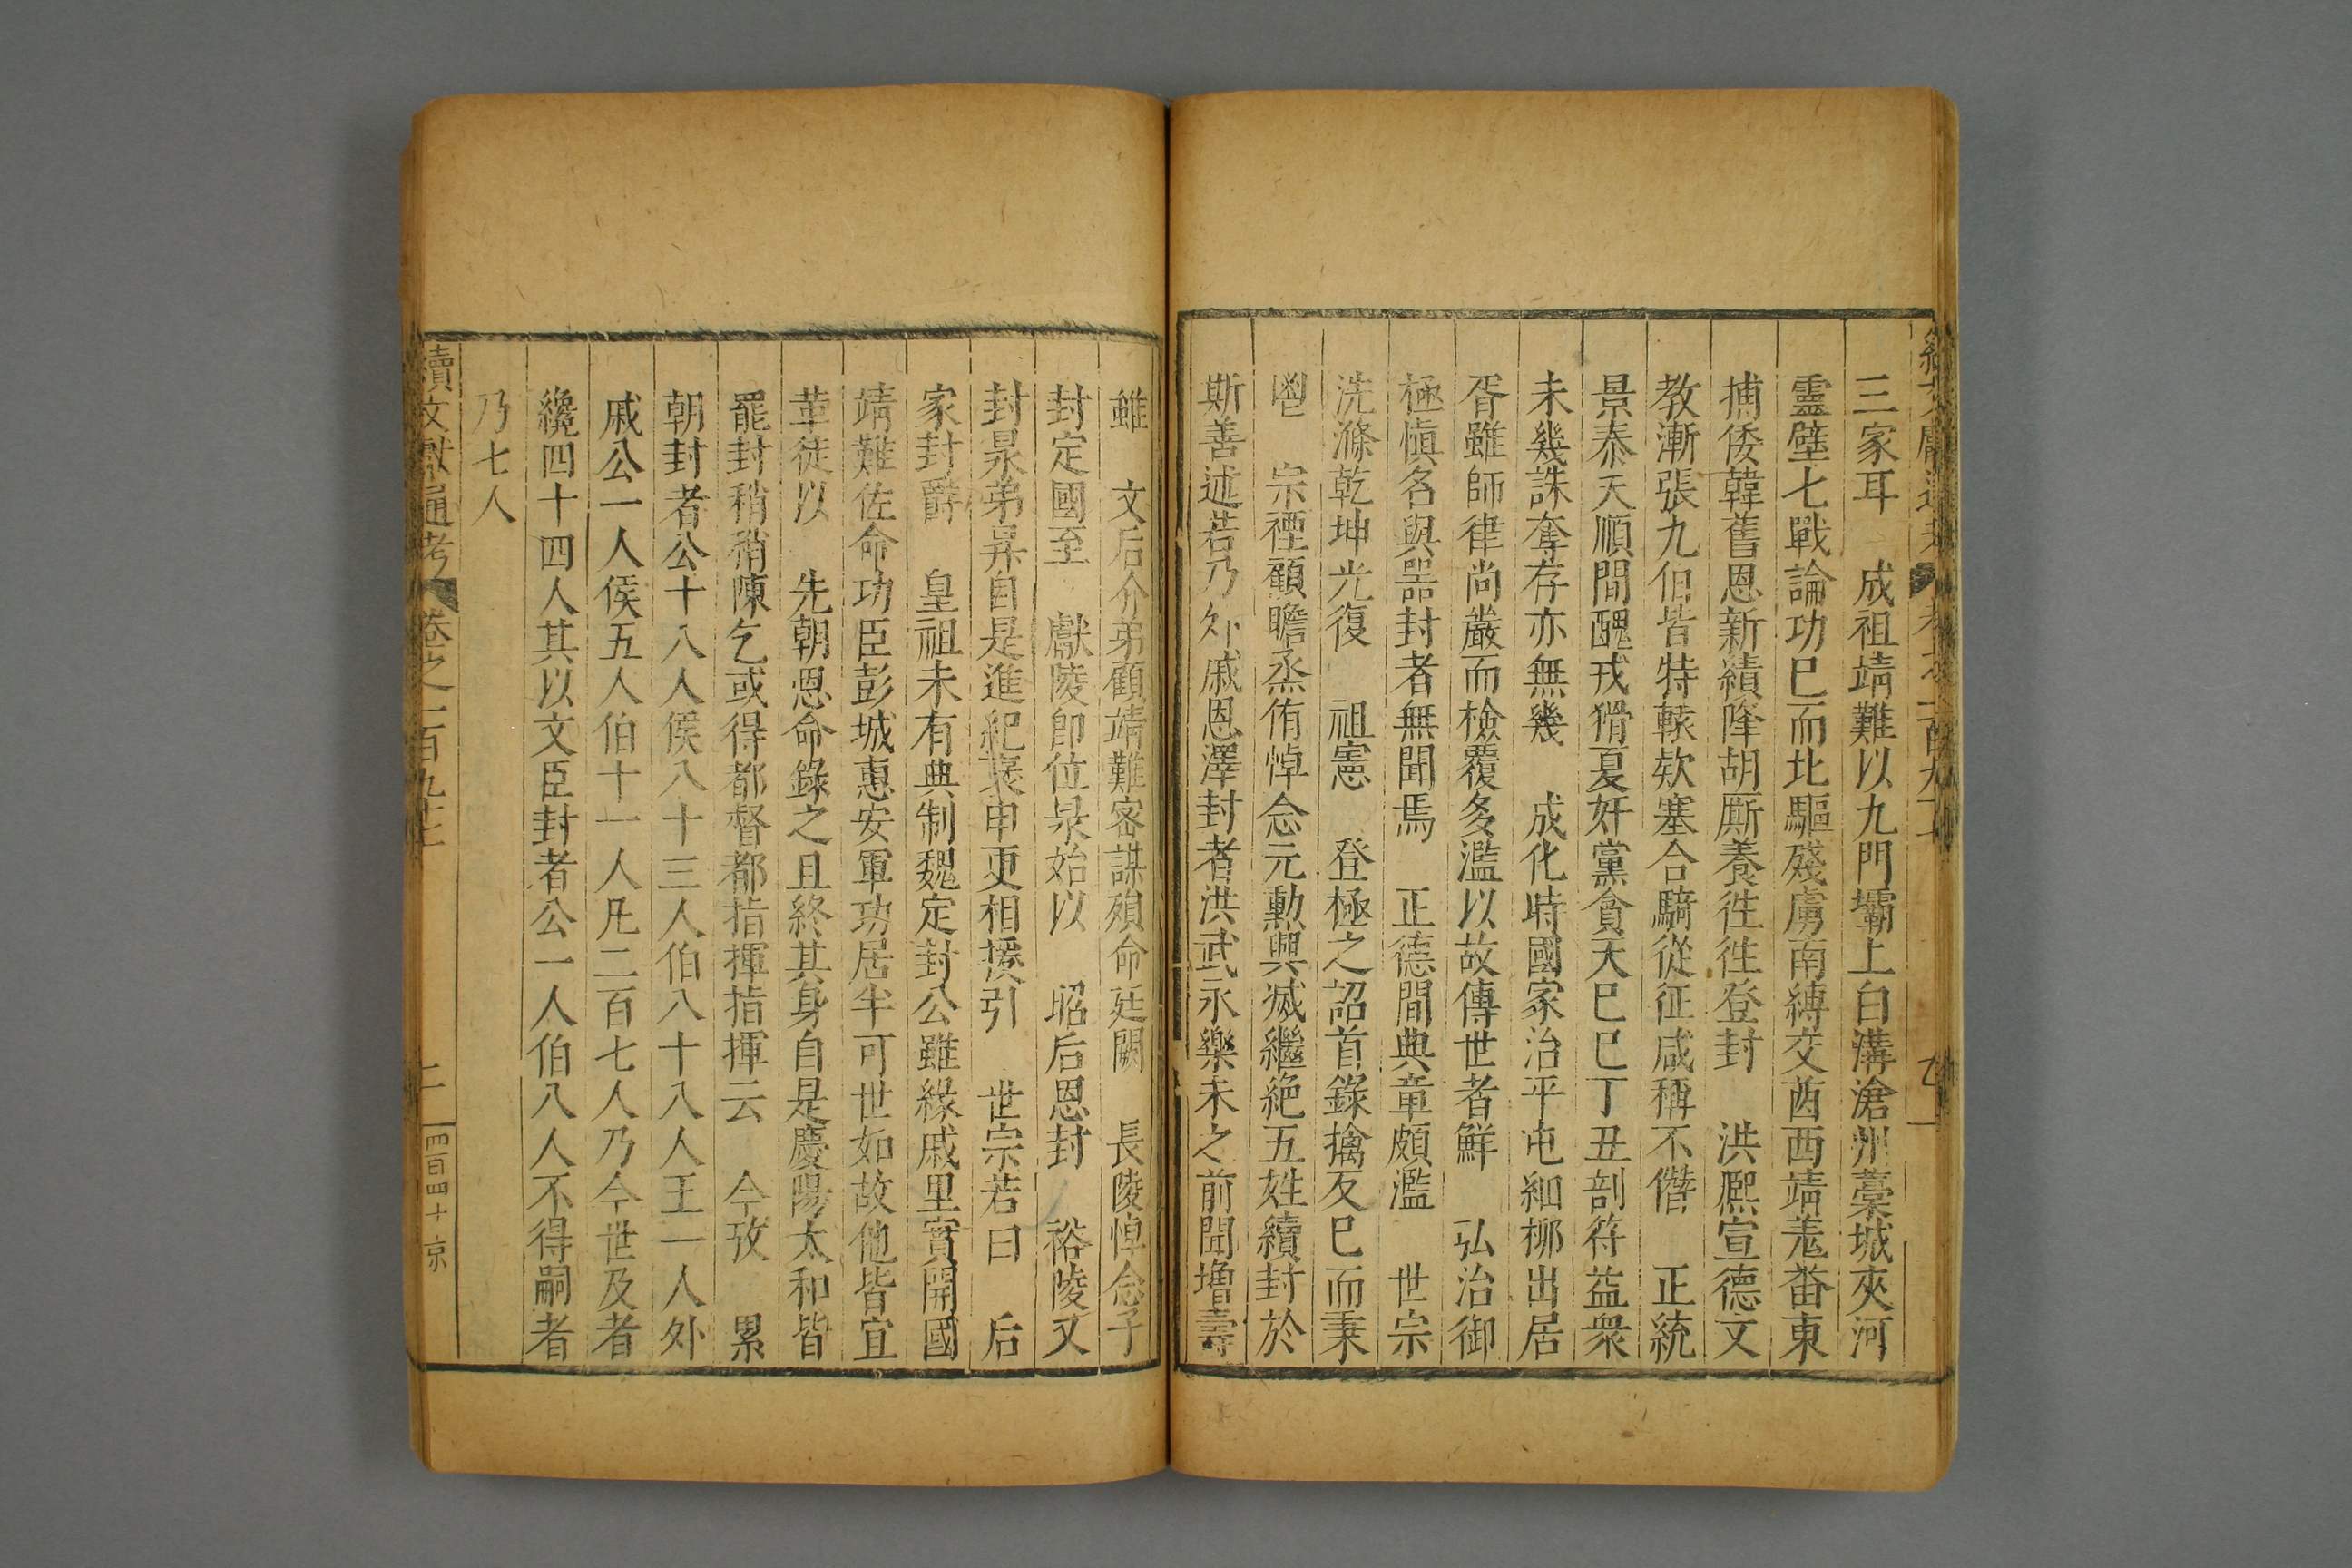 三家耳 成祖靖難以九門壩上白溝滄州藁城夾河
靈壁七戰論功巳而北驅殘虜南縛交酋西靖羗畨東
捕倭韓舊恩新績降胡厮養徃徃登封 洪熈宣德文
教漸張九伯皆特轅欵塞合騎從征咸稱不僭 正統
景泰天順間醜戎猾夏奸黨貪天巳巳丁丑剖符益衆
未幾誅奪存亦無幾 成化時國家治平屯細柳出居
胥雖師律尚嚴而檢覆多濫以故傳世者鮮 弘治御
極愼名與器封者無聞焉 正德間典章頗濫 世宗
洗滌乾坤光復 祖憲 登極之詔首錄擒反巳而秉
鬯 宗禋顧瞻烝侑悼念元勳興滅繼絶五姓續封於
斯善述若乃外戚恩澤封者洪武永樂未之前聞增壽
雖 文后介弟顧靖難密謀殞命廷闕 長陵悼念子
封定國至 獻陵卽位杲始以 昭后恩封 裕陵又
封杲弟昇自是進紀褎申更相援引 世宗若曰 后
家封爵 皇祖未有典制魏定封公雖緣戚里實開國
靖難佐命功臣彭城惠安軍功居半可世如故他皆宜
革徒以 先朝恩命錄之且終其身自是慶陽太和皆
罷封稍稍陳乞或得都督都指揮指揮云 今攷 累
朝封者公十八人侯八十三人伯八十八人王一人外
戚公一人侯五人伯十一人凡二百七人乃今世及者
纔四十四人其以文臣封者公一人伯八人不得嗣者
乃七人
續文獻通考 卷之一百九十七 二 四百四十 京